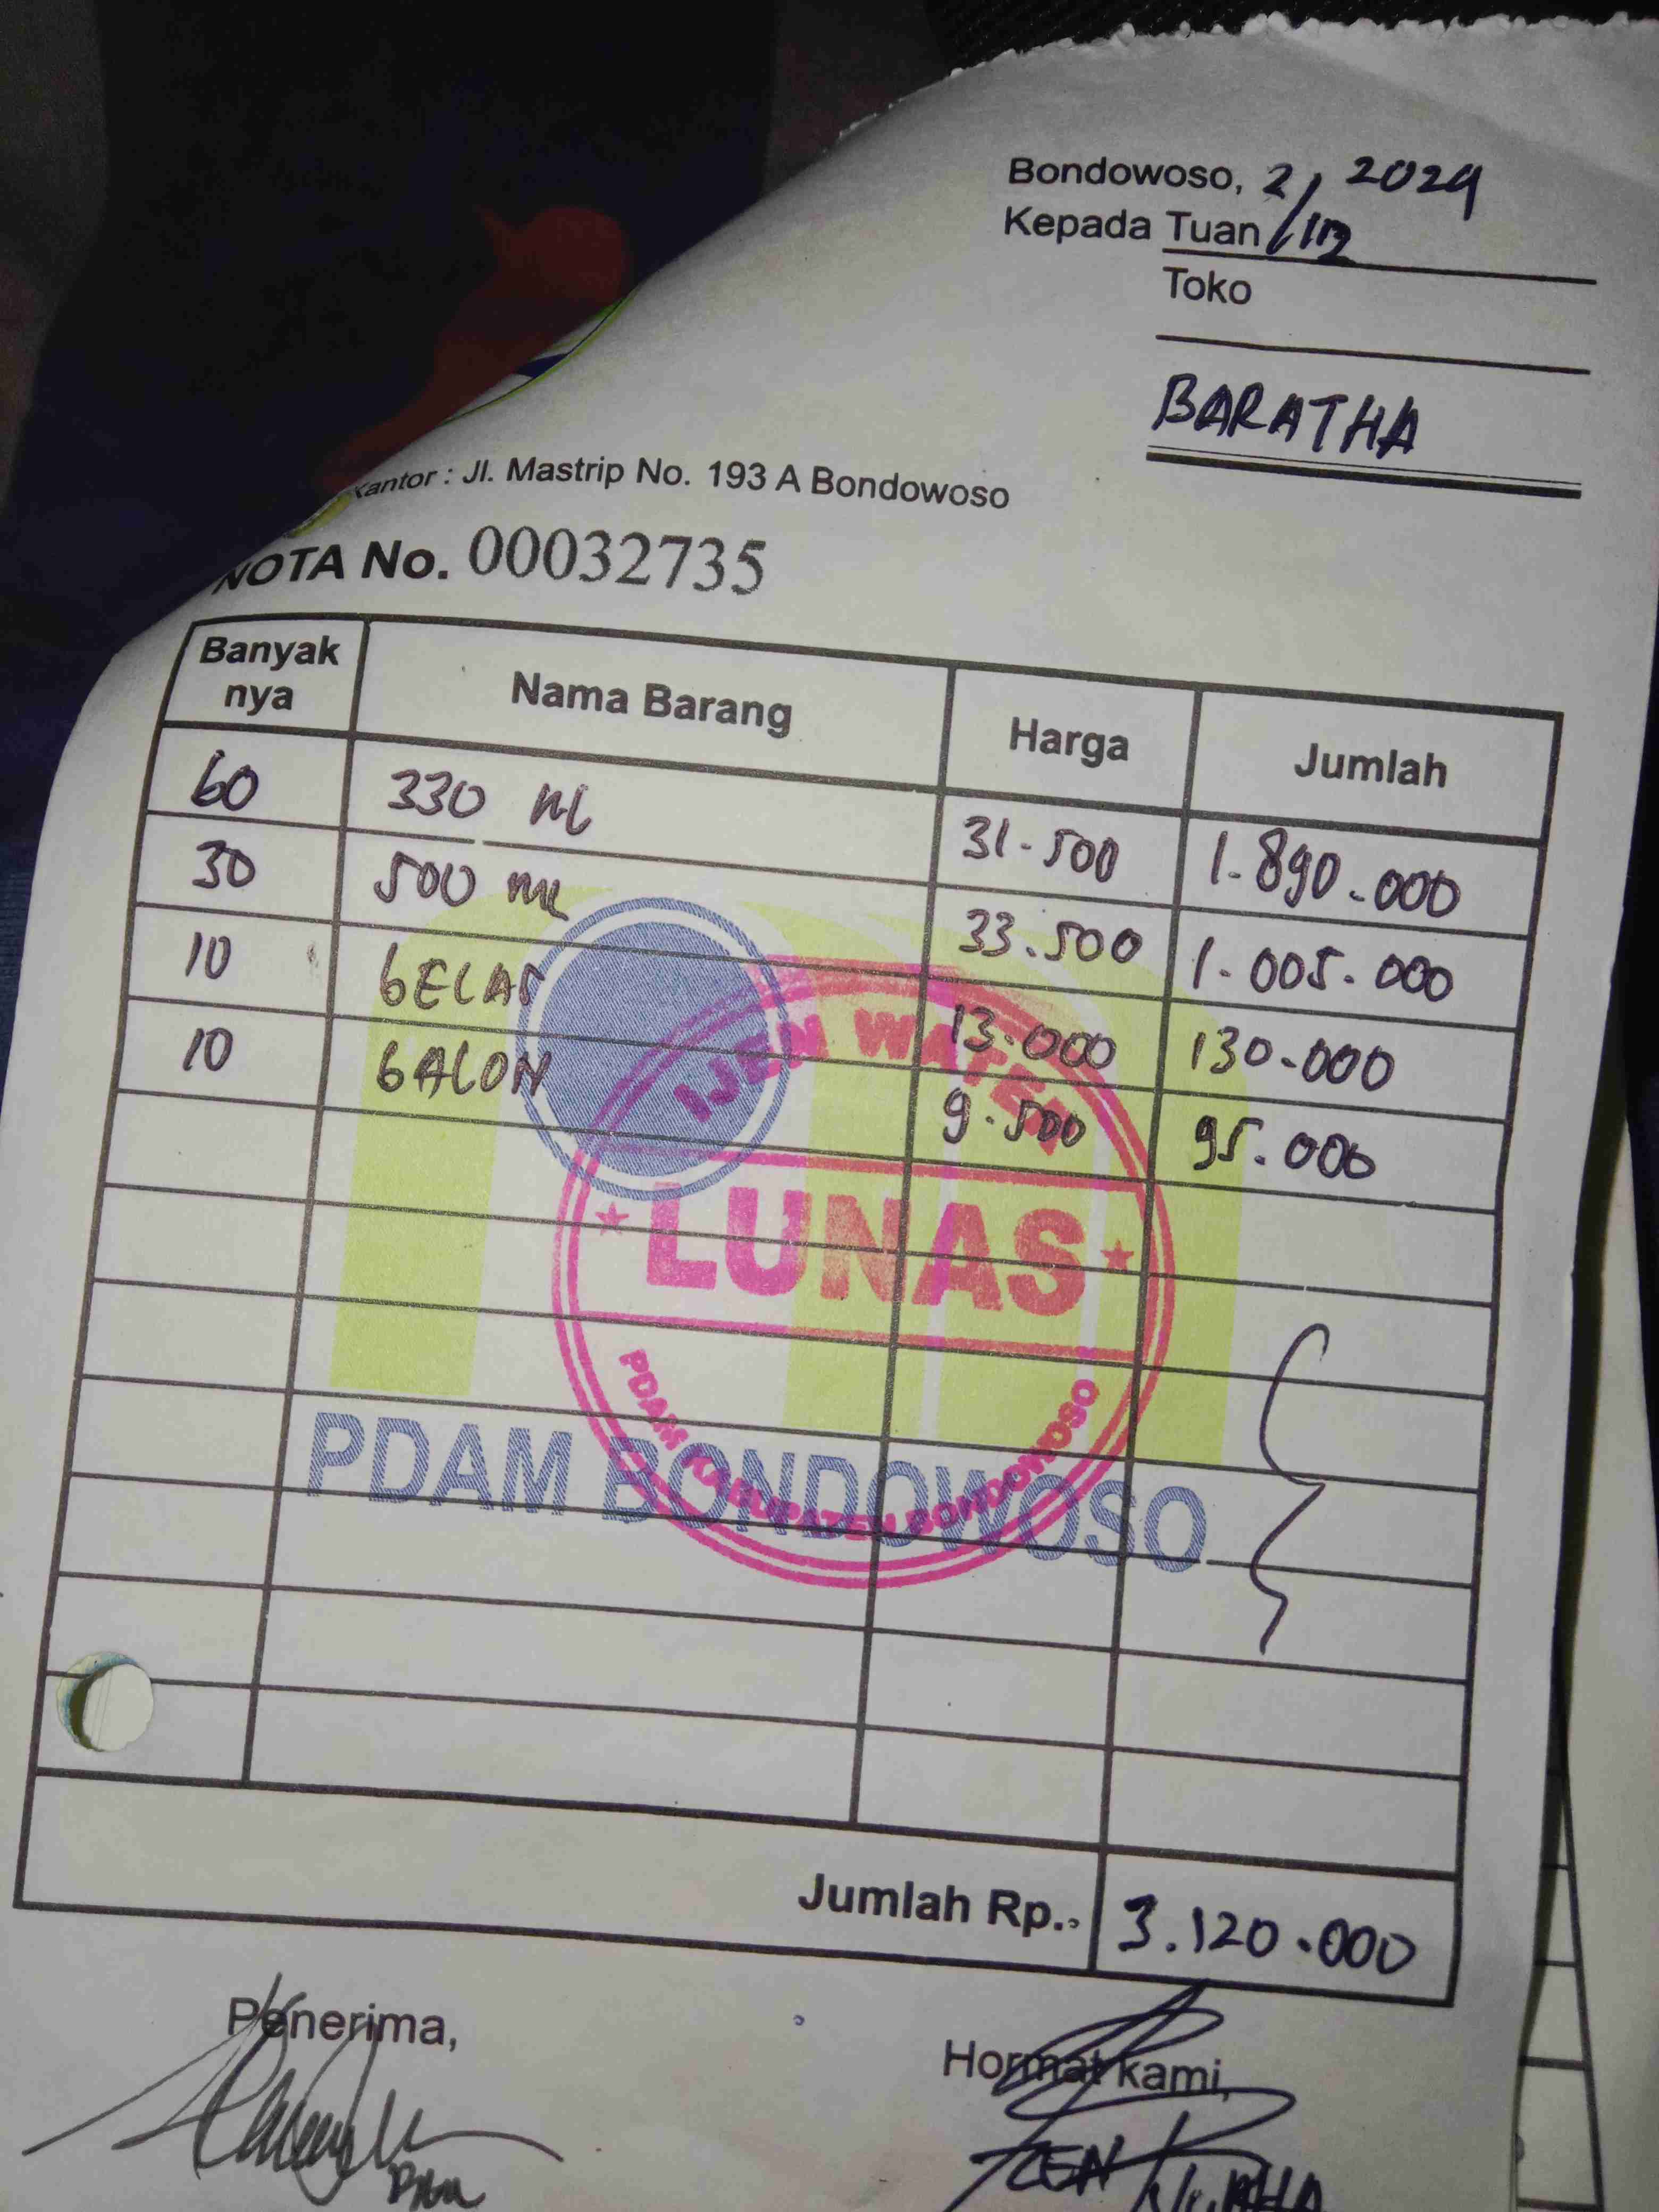 Bondowoso, 2/12 2024
Kepada Tuan
Toko
BARATHA
Kantor : Jl. Mastrip No. 193 A Bondowoso
NOTA No. 00032735
Banyak nya Nama Barang Harga Jumlah
60 330 ml 31.500 1.890.000
30 500 ml 33.500 1.005.000
10 GELAS 13.000 130.000
10 GALON 9.500 95.000
IJEN WATER
LUNAS
PDAM KABUPATEN BONDOWOSO
PDAM BONDOWOSO
Jumlah Rp.. 3.120.000
Penerima,
Hormat kami,